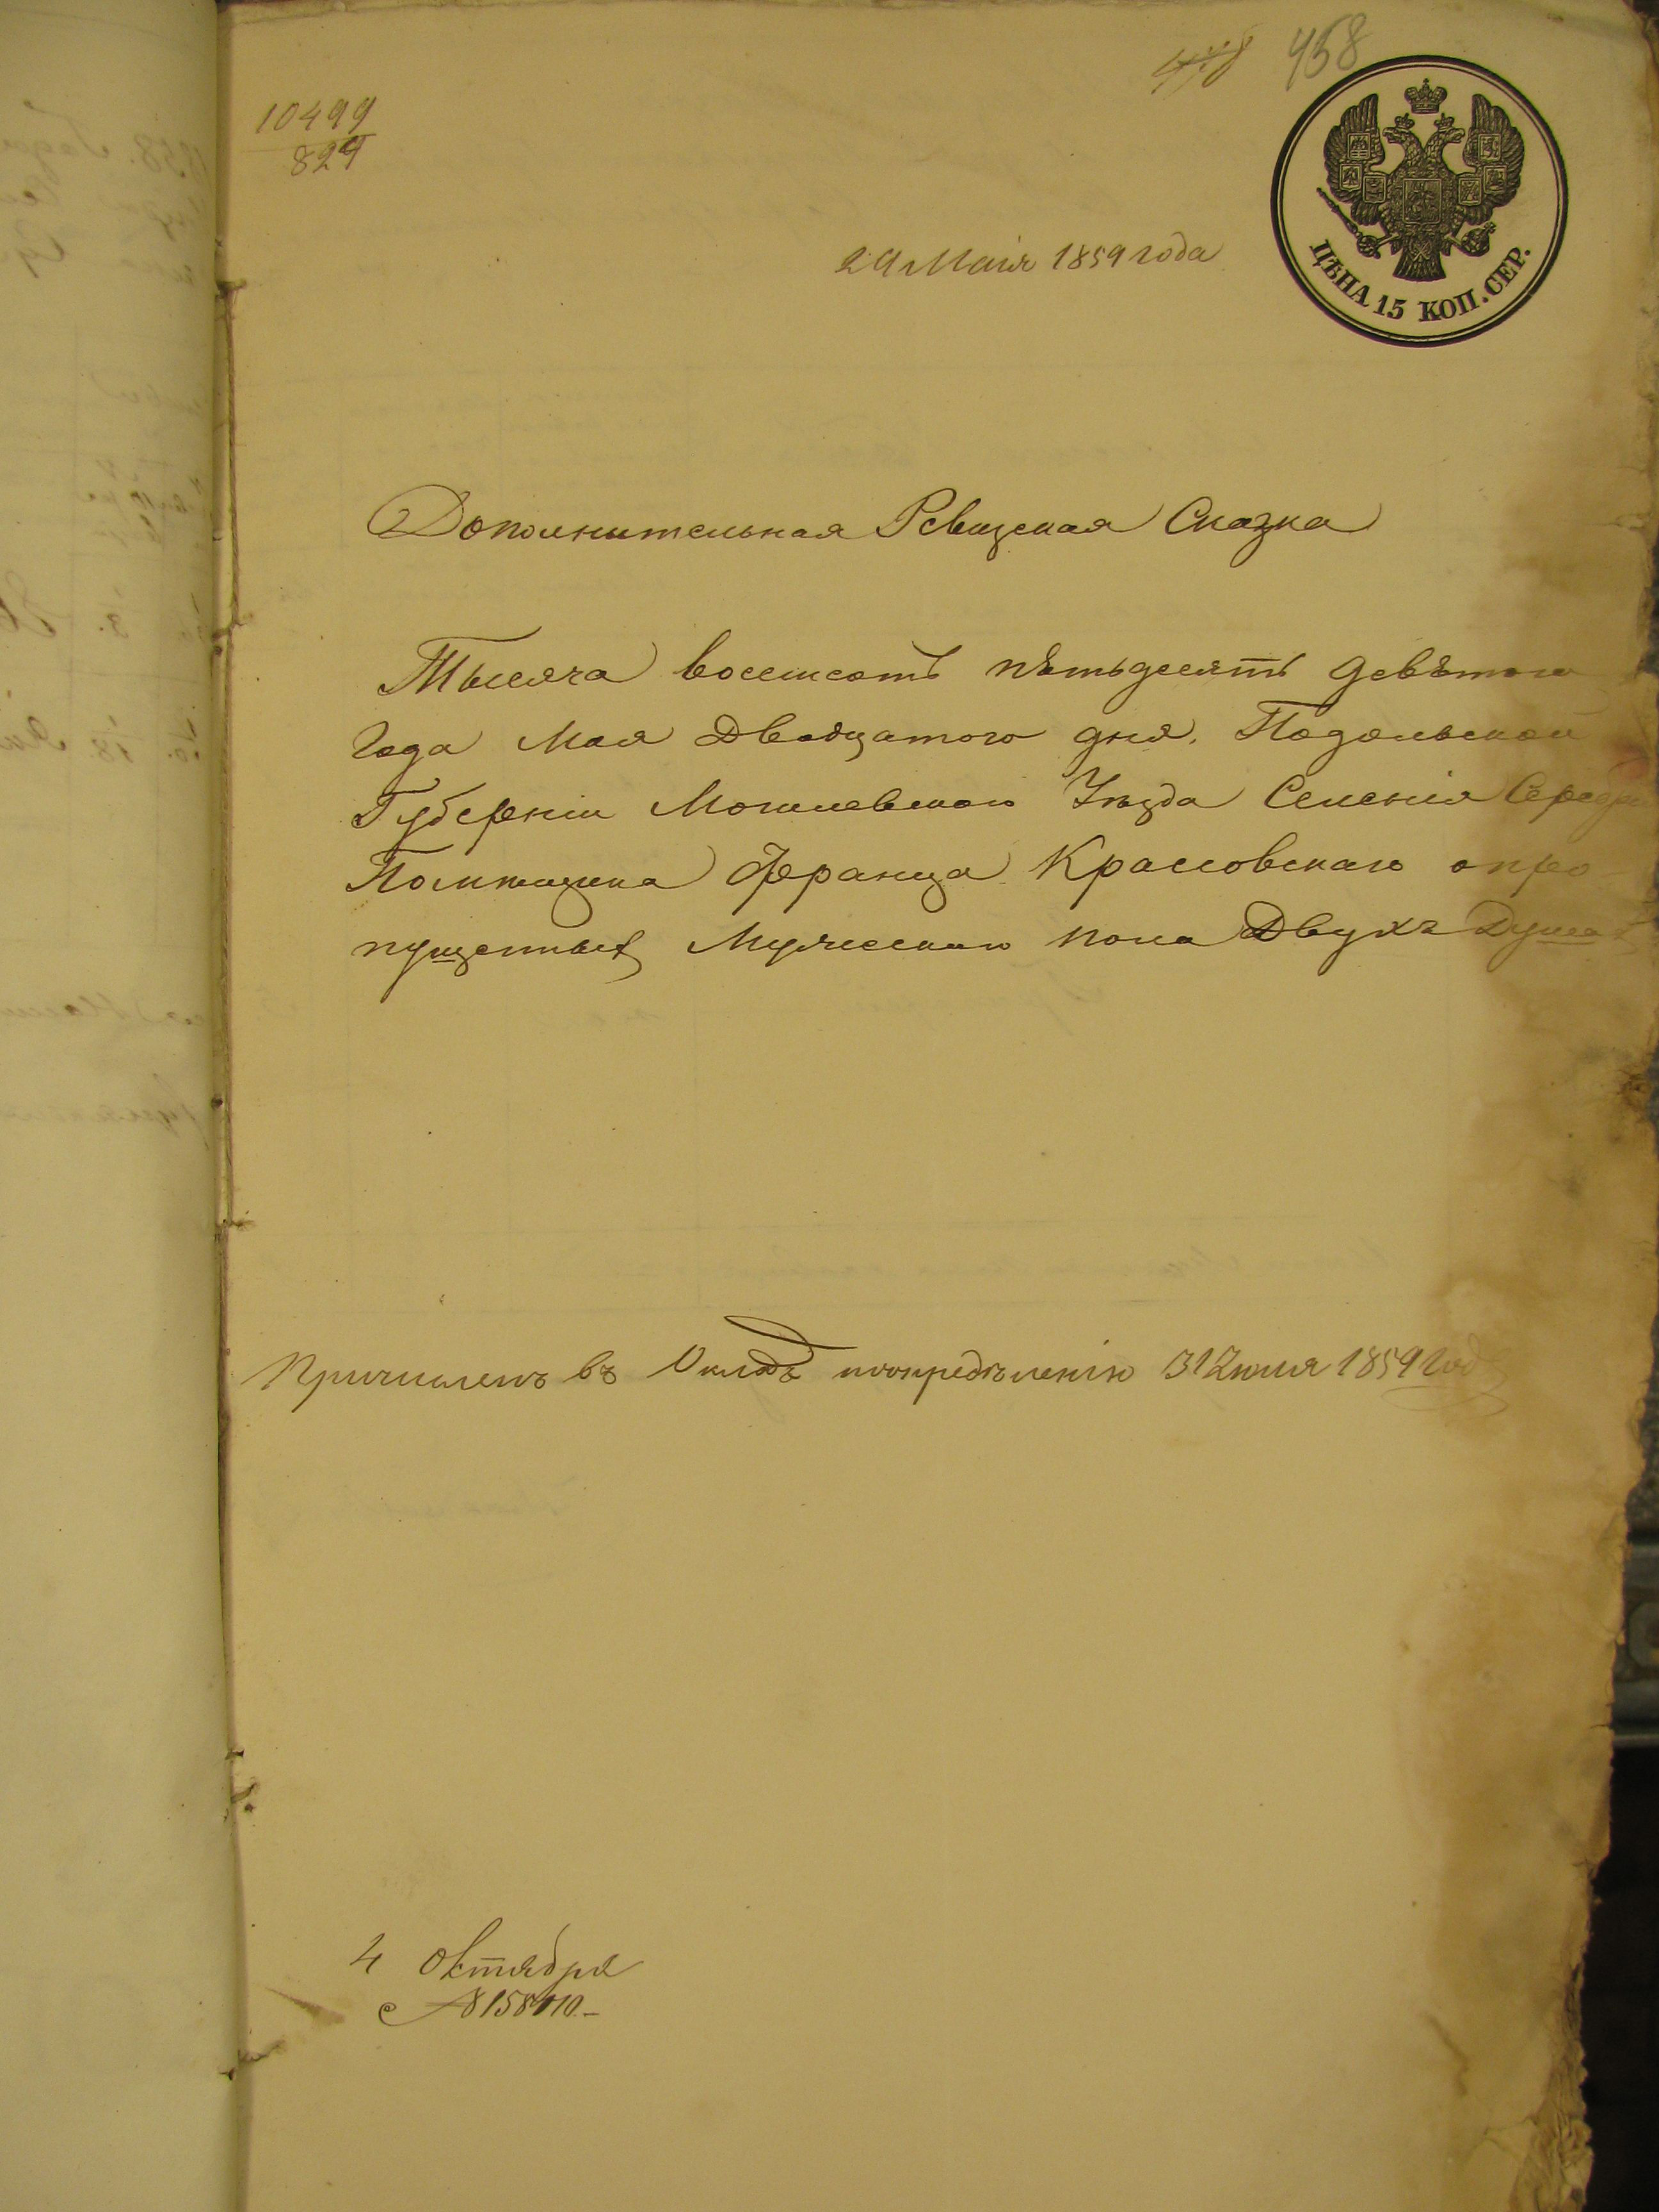 458
10499
829
29 Маія 1859 года
ЦѢНА 15 КОП. СЕР.
Дополнительная Ревизская Сказка
Тысяча восемсотъ пѣтьдесятъ девѣтого
Года Мая Двадцатого дня. Подольской
Губерніи Могилевскаго Уѣзда Селенія
Помѣщика Франца Красовскаго опро-
пущенныхъ Мужескаго пола Двухъ Душахъ
Причислено въ Окладъ поопредѣленію 31 Іюля 1859 Года
4 Октября